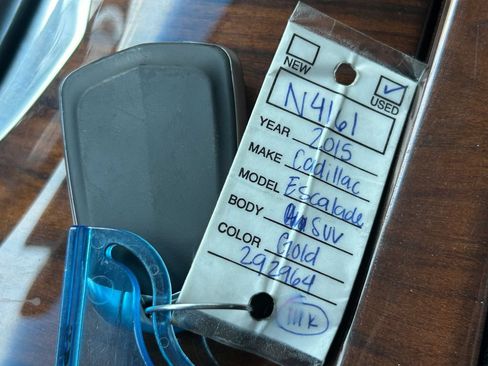 NEW
USED
N4161
YEAR 2015
MAKE Cadillac
MODEL Escalade
BODY SUV
COLOR Gold
292964
111K